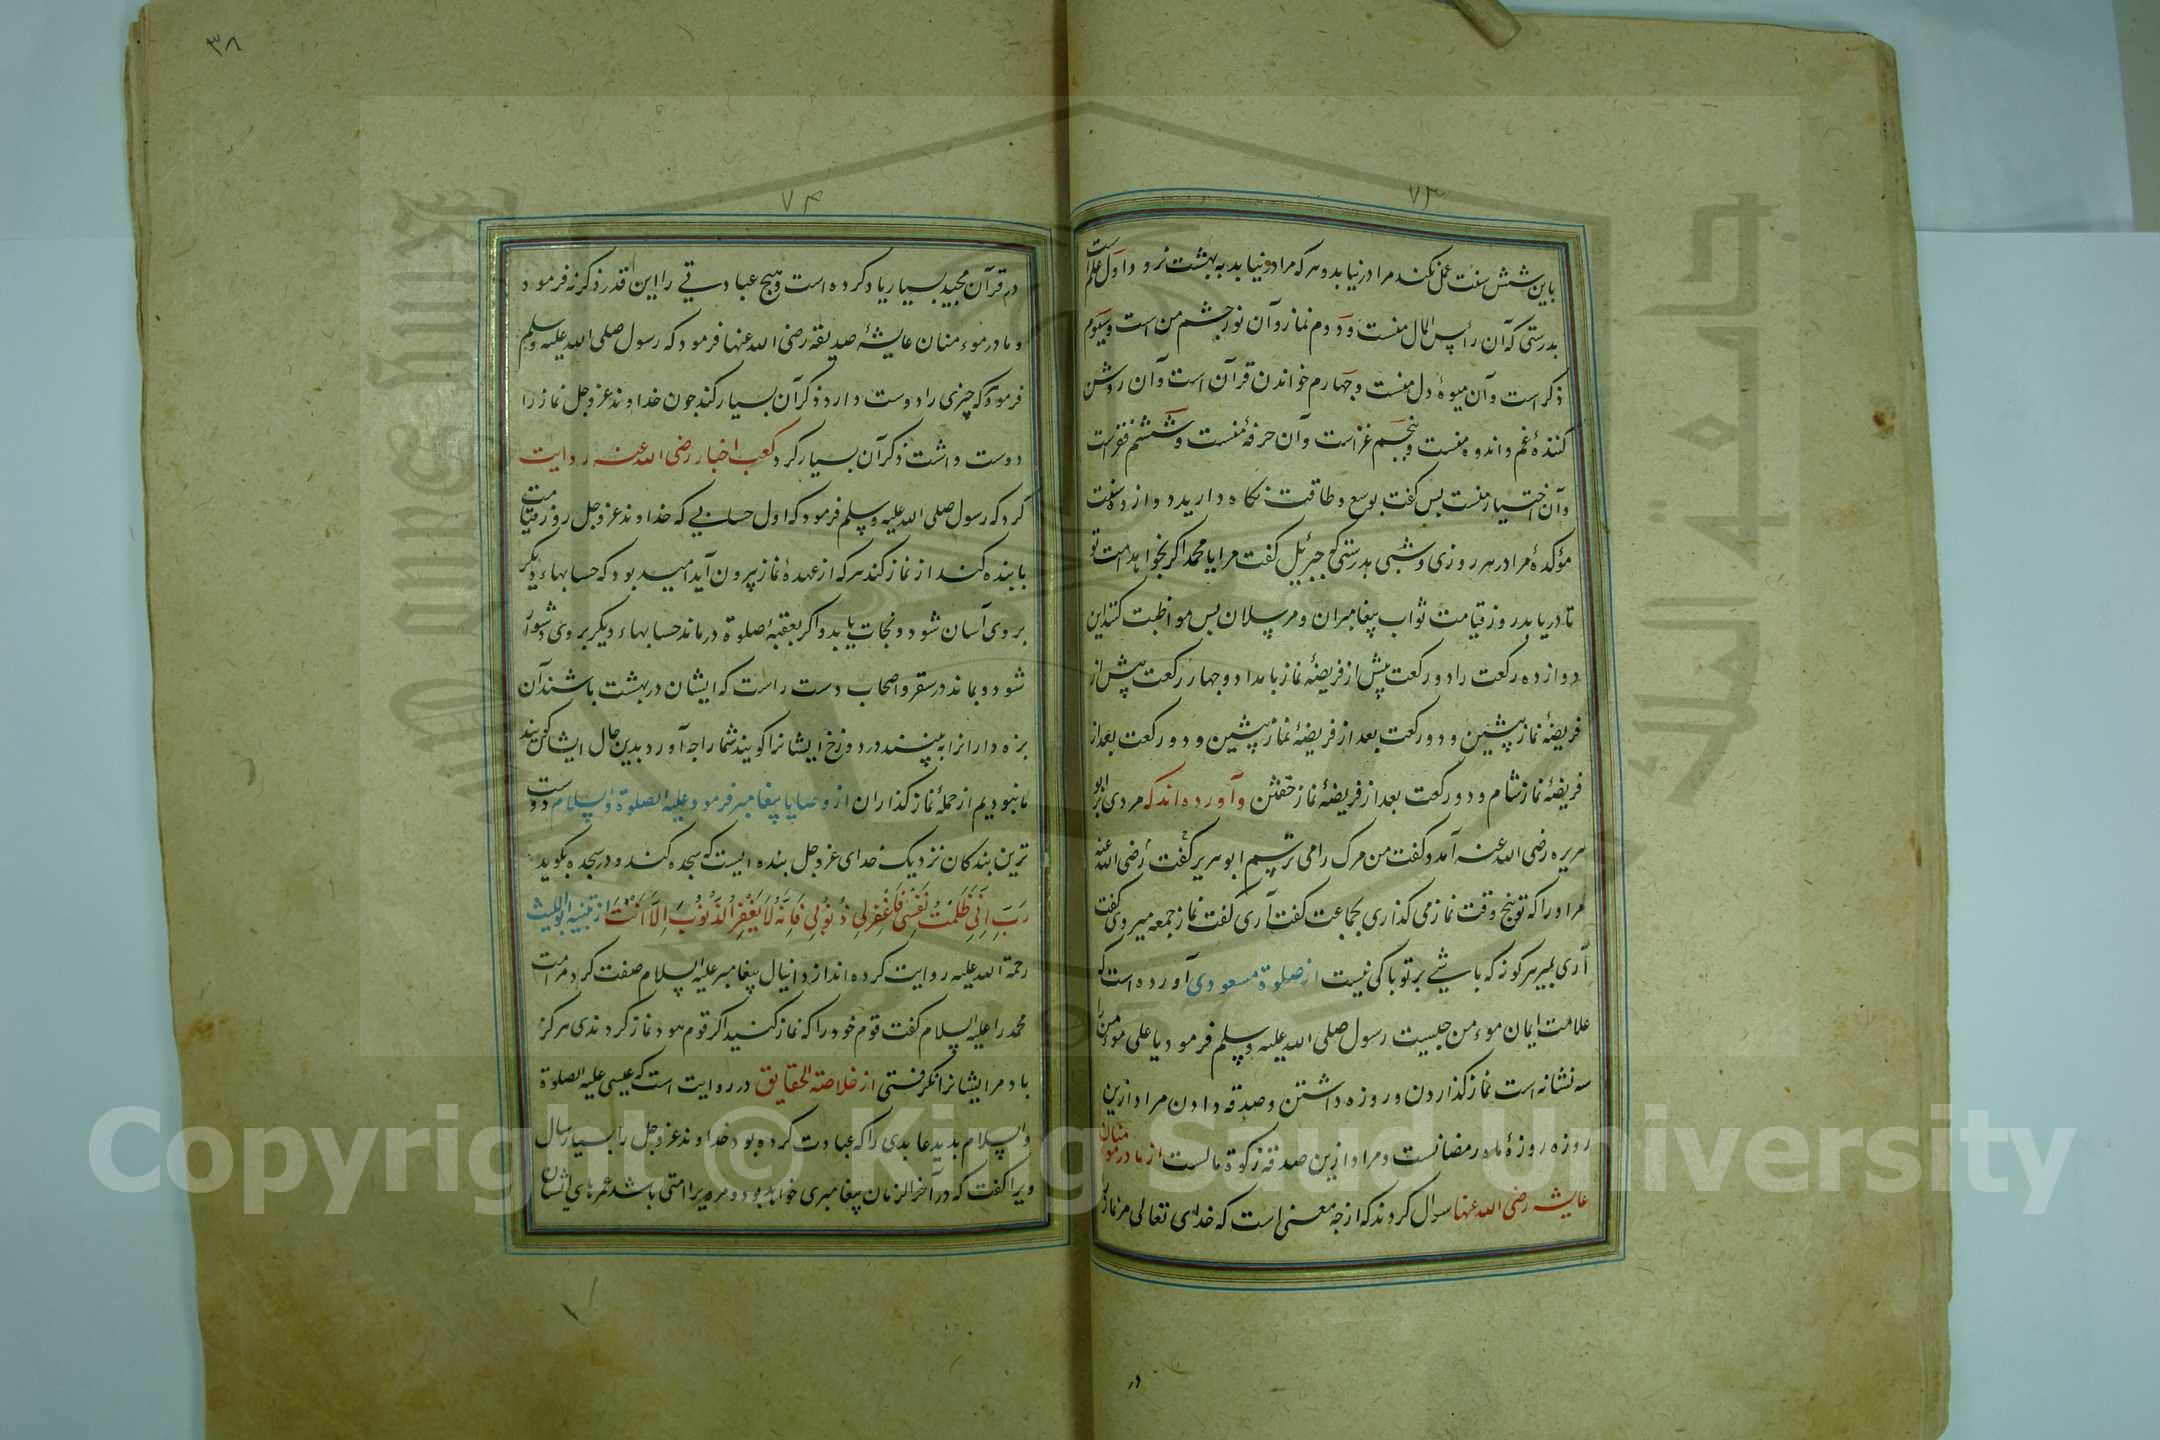 ۷۳
باین شش سنت عمل نکند مرا در نیابد و هر که مرا در نیابد به بهشت نرود و اول علم است
بدرستی که آن رأس المال منست و دوم نماز و آن نور چشم من است و سیوم
ذکر است و آن میوهٔ دل منست و چهارم خواندن قرآن است و آن روشن
کنندهٔ غم و اندوه منست و پنجم غزاست و آن حرفهٔ منست و ششم فقر است
و آن اختیار منست پس گفت بوسع و طاقت نگاه دارید دوازده سنت
مؤکدهٔ مرا در هر روزی و شبی بدرستی که جبرئیل گفت مرا یا محمد اگر بخواهد امت تو
تا دریابد روز قیامت ثواب پیغامبران و مرسلان پس مواظبت کنند این
دوازده رکعت را دو رکعت پیش از فریضهٔ نماز بامداد و چهار رکعت پیش از
فریضهٔ نماز پیشین و دو رکعت بعد از فریضهٔ نماز پیشین و دو رکعت بعد از
فریضهٔ نماز شام و دو رکعت بعد از فریضهٔ نماز خفتن و آورده اند که مردی بر ابو
هریره رضی الله عنه آمد و گفت من مرگ را می ترسم ابو هریره گفت رضی الله عنه
مر او را که تو پنج وقت نماز می گذاری بجماعت گفت آری گفت نماز جمعه میروی گفت
آری بمیر هر گونه که باشی بر تو باکی نیست از صلوة مسعودی آورده است که
علامت ایمان موءمن چیست رسول صلی الله علیه وسلم فرمود یا علی موءمن را
سه نشانه است نماز گذاردن و روزه داشتن و صدقه دادن مراد ازین
روزه روزهٔ ماه رمضانست و مراد ازین صدقه زکوة مالست از مادر موءمنان
عایشه رضی الله عنها سوال کردند که از چه معنی است که خدای تعالی مر نماز را
در
۳۸
۷۴
در قرآن مجید بسیار یاد کرده است و هیچ عبادتی را این قدر ذکر نفرموده
و مادر موءمنان عایشهٔ صدیقه رضی الله عنها فرمود که رسول صلی الله علیه وسلم
فرمود که چیزی را دوست دارد ذکر آن بسیار کند چون خداوند عز وجل نماز را
دوست داشت ذکر آن بسیار کرد کعب احبار رضی الله عنه روایت
کرد که رسول صلی الله علیه وسلم فرمود که اول حسابی که خداوند عز وجل روز قیامت
با بنده کند از نماز کند هر که از عهدهٔ نماز بیرون آید امید بود که حسابهاء دیگر
بر وی آسان شود و نجات یابد و اگر بعقبهٔ صلوة درماند حسابهاء دیگر بر وی دشوار
شود و بماند در سقر و اصحاب دست راست که ایشان در بهشت باشند آن
بزه دارانرا ببینند در دوزخ ایشانرا گویند شما را چه آورد بدین حال ایشان گویند
ما نبودیم از جملهٔ نماز گذاران از وصایا پیغامبر فرمود علیه الصلوة والسلام دوست
ترین بندگان نزدیک خدای عز وجل بنده ایست که سجده کند و در سجده بگوید
رَبِّ اِنِّی ظَلَمْتُ نَفْسِی فَاغْفِرْ لِی ذُنُوبِی فَاِنَّهُ لَا یَغْفِرُ الذُّنُوبَ اِلَّا اَنْتَ از تنبیه ابواللیث
رحمة الله علیه روایت کرده اند از دانیال پیغامبر علیه السلام صفت کرد مر امت
محمد را علیه السلام گفت قوم خود را که نماز کنید اگر قوم هود نماز کردندی هرگز
باد مر ایشانرا نگرفتی از خلاصة الحقایق در روایت است که عیسی علیه الصلوة
والسلام بدید عابدی را که عبادت کرده بود خداوند عز وجل را بسیار سال
ویرا گفت که در آخر الزمان پیغامبری خواهد بود و مر ویرا امتی باشد عمرهای ایشان
Copyright © King Saud University